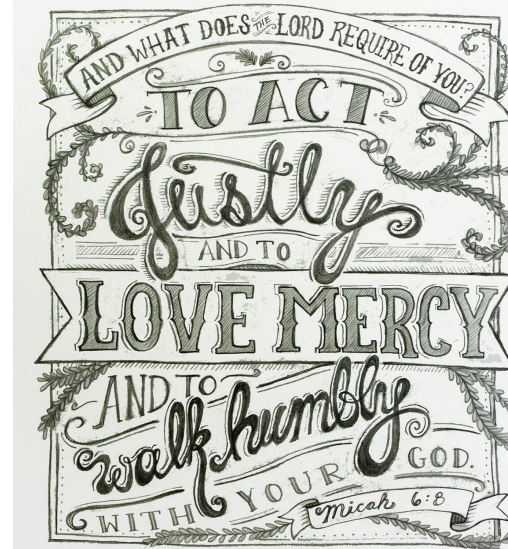 AND WHAT DOES THE LORD REQUIRE OF YOU?
TO ACT
Justly
AND TO
LOVE MERCY
AND TO
walk humbly
WITH YOUR GOD.
Micah 6:8